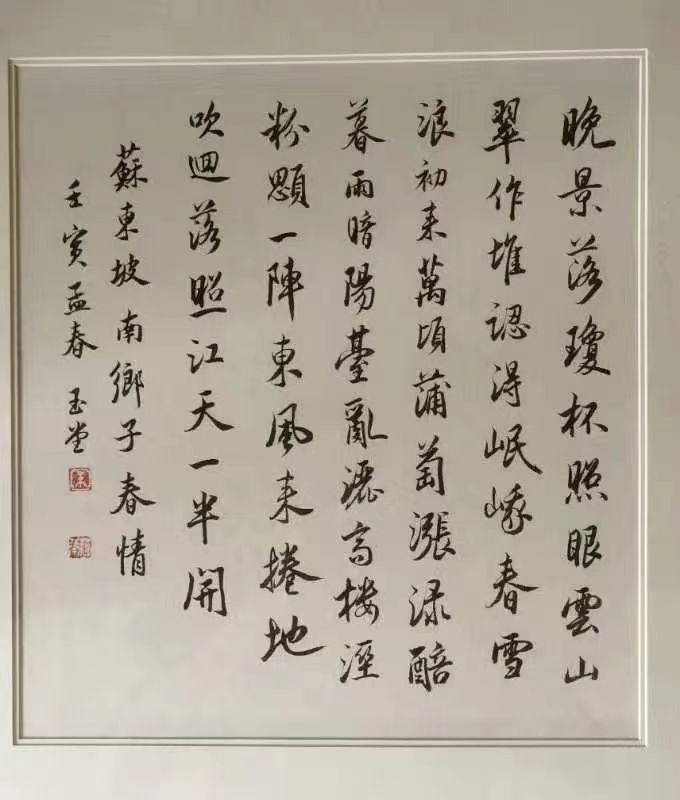 晚景落瓊杯照眼雲山
翠作堆認得岷峨春雪
浪初来萬頃蒲萄漲渌醅
暮雨暗陽臺亂灑高樓溼
粉顋一陣東風来捲地
吹迴落照江天一半開
蘇東坡南鄉子春情
壬寅孟春 玉堂